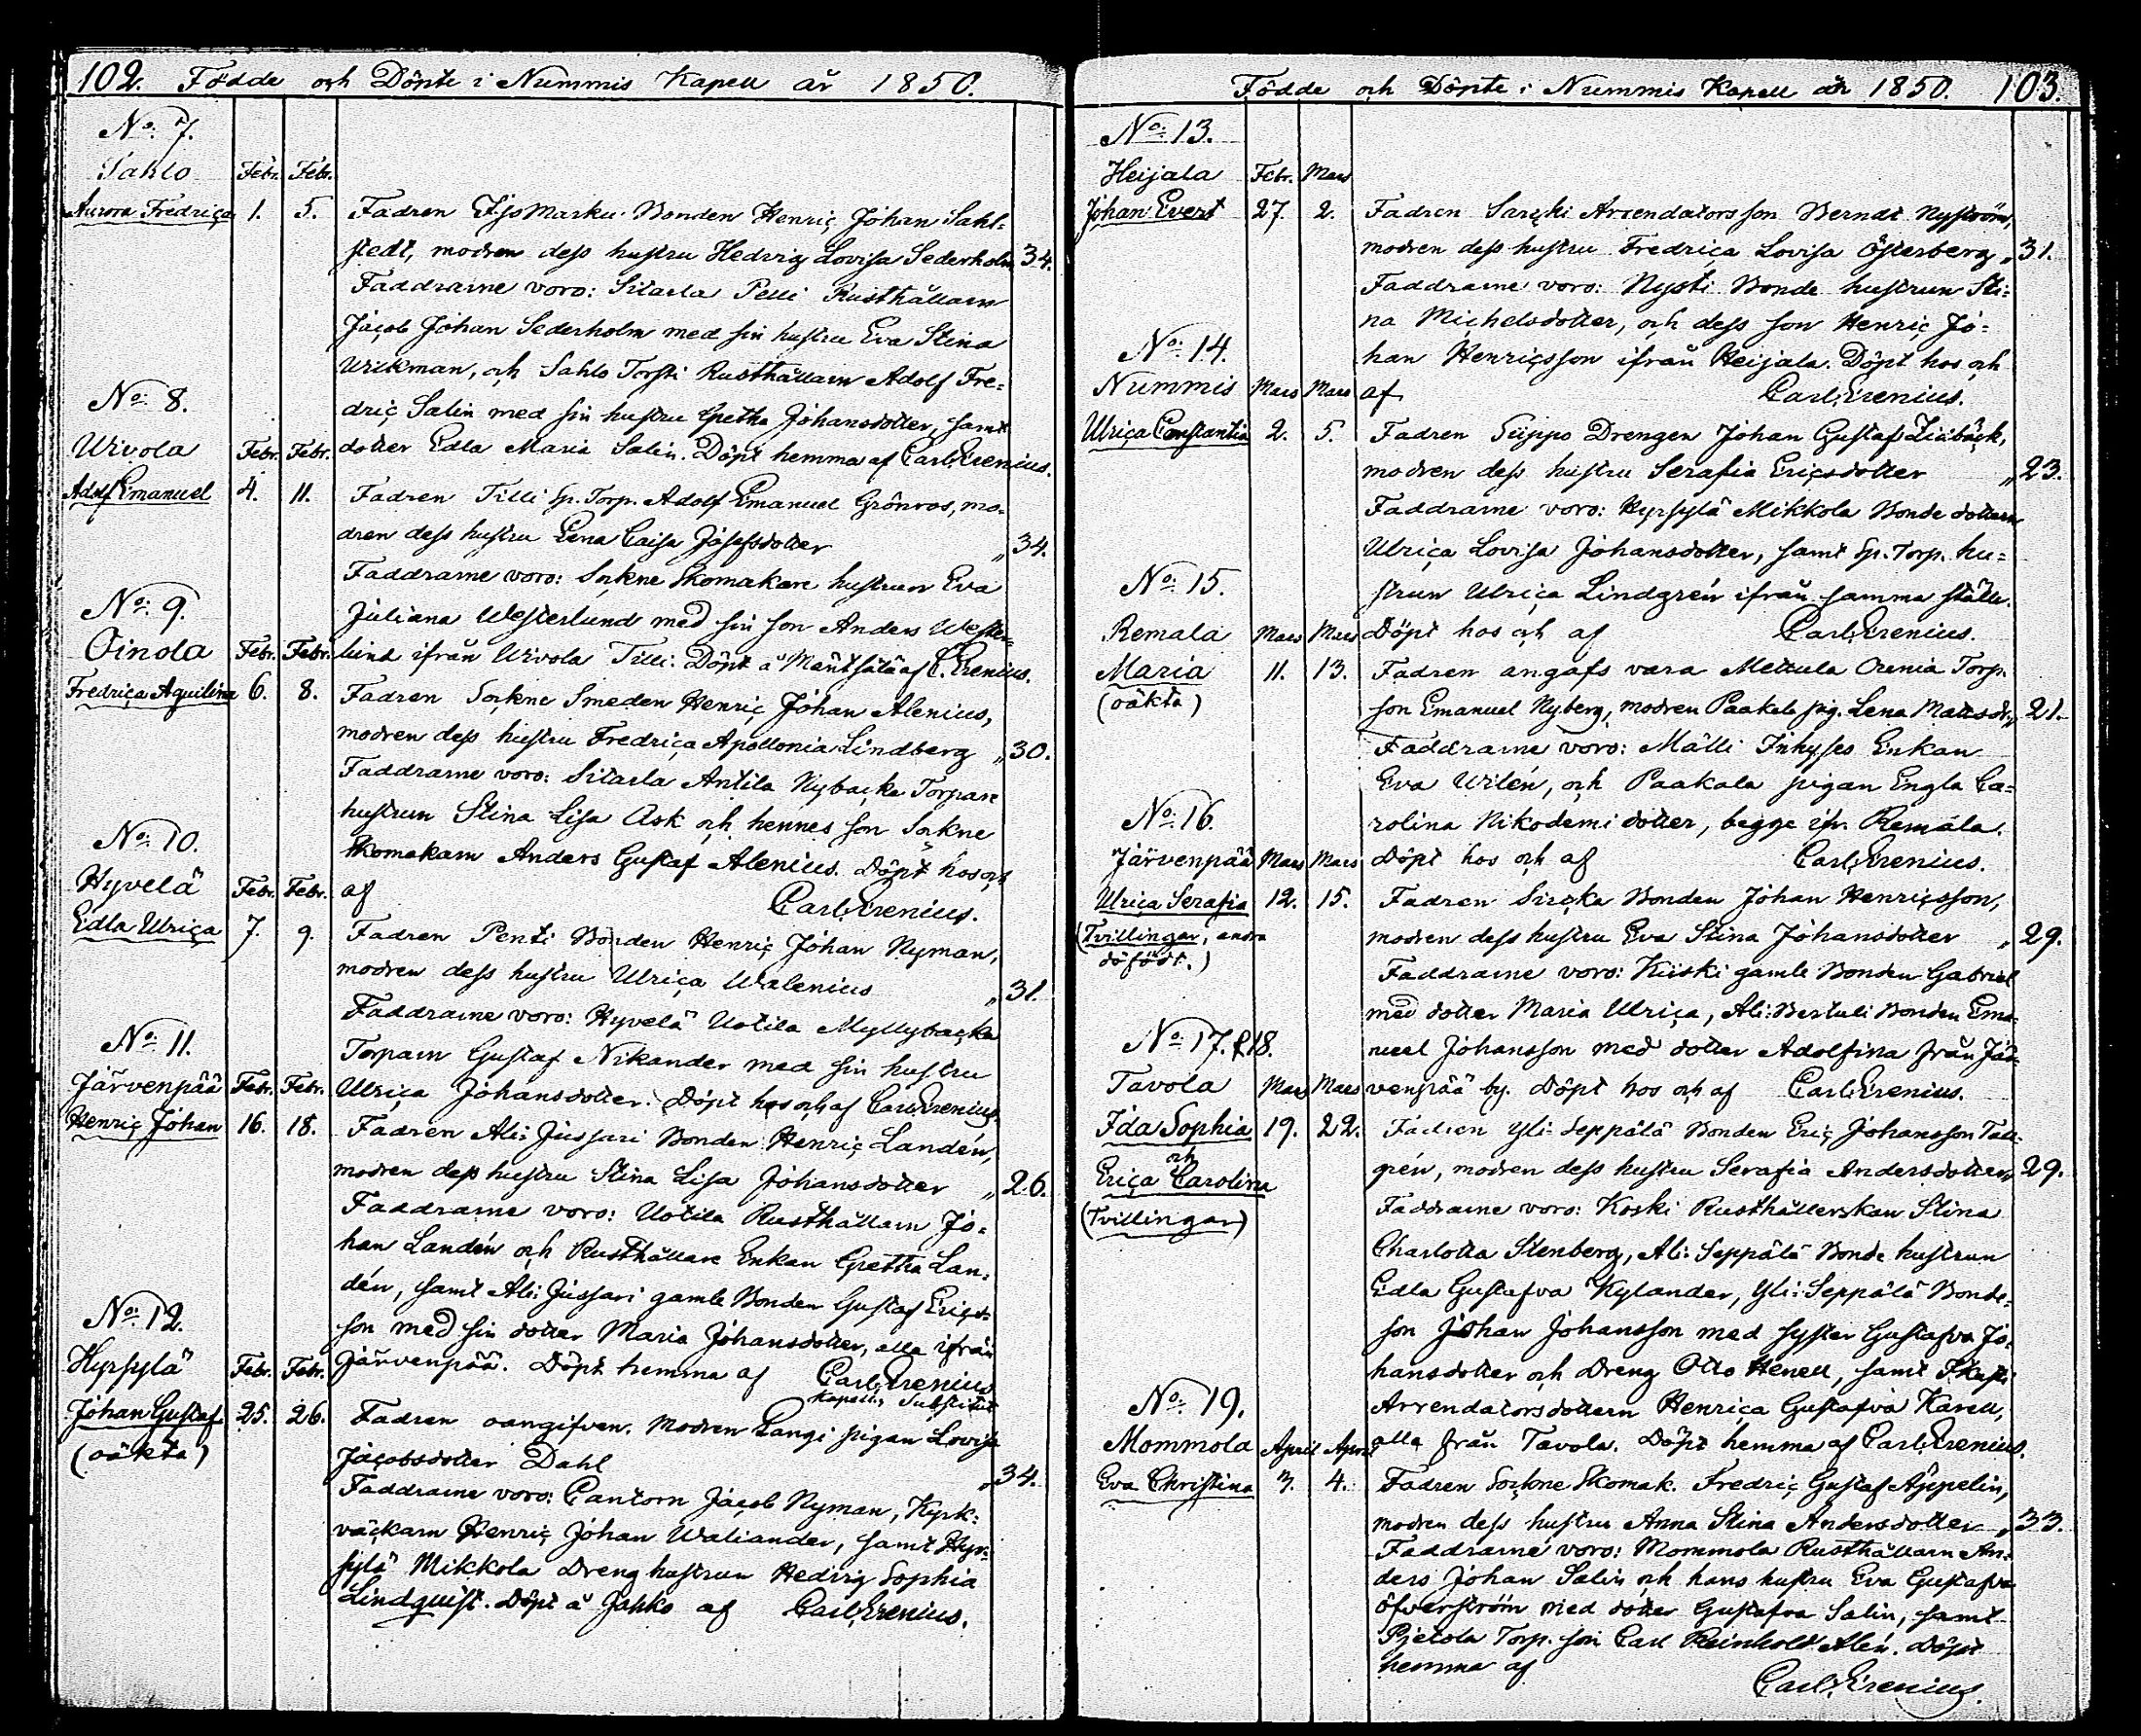 102. Födde och Döpte i Nummis Kapell år 1850.
No: 7.
Sahlo Febr. Febr.
Aurora Fredriça 1. 5. Fadren Ejs Marku Bonden Henriç Johan Sahl=
stedt, modren dess hustru Hedvig Lovisa Sederholm 34.
Faddrarne voro: Sitarla Pelli Rusthållarn
Jaçob Johan Sederholm med sin hustru Eva Stina
Wikman, och Sahlo Torsti Rusthållarn Adolf Fre=
driç Salin med sin hustru Gretha Johansdotter, samt
dotter Edla Maria Salin. Döpt hemma af Carl Erenius.
No: 8.
Wivola Febr. Febr.
Adolf Emanuel 4. 11. Fadren Tilli Sp. Torp. Adolf Emanuel Grönros, mo=
dren dess hustru Lena Caisa Josefsdotter „ 34.
Faddrarne voro: Sokne Skomakare hustrun Eva
Juliana Westerlund med sin son Anders Wester=
lund ifrån Wivola Tilli. Döpt å Mäntsälä af C. Erenius.
No: 9.
Oinola Febr. Febr.
Fredriça Aquilina 6. 8. Fadren Sokne Smeden Henriç Johan Alenius,
modren dess hustru Fredriça Apollonia Lindberg „ 30.
Faddrarne voro: Sitarla Antila Nybaçka Torpare
hustrun Stina Lisa Ask och hennes son Sokne
Skomakarn Anders Gustaf Alenius. Döpt hos och
af Carl Erenius.
No: 10.
Hyvelä Febr. Febr.
Edla Ulriça 7. 9. Fadren Penti Bonden Henriç Johan Nyman,
modren dess hustru Ulriça Walenius „ 31.
Faddrarne voro: Hyvelä Uotila Myllybaçka
Torparn Gustaf Nikander med sin hustru
Ulriça Johansdotter. Döpt hos och af Carl Erenius.
No: 11.
Järvenpää Febr. Febr.
Henriç Johan 16. 18. Fadren Ali: Jussari Bonden Henriç Landén,
modren dess hustru Stina Lisa Johansdotter „ 26.
Faddrarne voro: Uotila Rusthållarn Jo=
han Landén och Rusthållare Enkan Gretha Lan=
dén, samt Ali: Jussari gamle Bonden Gustaf Eriçs=
son med sin dotter Maria Johansdotter, alla ifrån
Järvenpää. Döpt hemma af Carl Erenius
Kapells Substitut
No: 12.
Hyrsylä Febr. Febr.
Johan Gustaf 25. 26. Fadren oangifven. Modren Langi pigan Lovisa
(oäkta) Jaçobsdotter Dahl „ 34.
Faddrarne voro: Cantorn Jaçob Nyman, Kyrk=
väçkarn Henriç Johan Waliander, samt Hyr=
sylä Mikkola Dreng hustrun Hedvig Sophia
Lindquist. Döpt å Jakko af Carl Erenius.
Födde och Döpte i Nummis Kapell år 1850. 103.
No: 13.
Heijala Febr. Mars
Johan Evert 27. 2. Fadren Sarçki Arrendators son Berndt Nyström,
modren dess hustru Fredriça Lovisa Österberg „ 31.
Faddrarne voro: Nysti Bonde hustrun Sti=
na Michelsdotter, och dess son Henriç Jo=
han Henriçsson ifrån Heijala. Döpt hos och
af Carl Erenius.
No: 14.
Nummis Mars Mars
Ulriça Constantia 2. 5. Fadren Seppo Drengen Johan Gustaf Liibäck,
modren dess hustru Serafia Eriçsdotter „ 23.
Faddrarne voro: Hyrsylä Mikkola Bonde dottern
Ulriça Lovisa Johansdotter, samt Sp. Torp. hu=
strun Ulriça Lindgrén ifrån samma ställe.
Döpt hos och af Carl Erenius.
No: 15.
Remala Mars Mars
Maria 11. 13. Fadren angafs vara Mettula Orenia Torp.
(oäkta) son Emanuel Nyberg, modren Paakala pig. Lena Mattsdr. „ 21.
Faddrarne voro: Mälli Inhyses Enkan
Eva Wilén, och Paakala pigan Engla Ca=
rolina Nikodemi dotter, begge ifr. Remala.
Döpt hos och af Carl Erenius.
No: 16.
Järvenpää Mars Mars
Ulriça Serafia 12. 15. Fadren Sirçka Bonden Johan Henriçsson,
(Tvillingar, andra modren dess hustru Eva Stina Johansdotter „ 29.
dödfödt.) Faddrarne voro: Kiiski gamle Bonden Gabriel
med dotter Maria Ulriça, Ali: Bertuli Bonden Ema=
nuel Johansson med dotter Adolfina från Jär=
venpää by. Döpt hos och af Carl Erenius.
No: 17. & 18.
Tavola Mars Mars
Ida Sophia 19. 22. Fadren Yli: Seppälä Bonden Eriç Johansson Tall=
och
Eriça Carolina grén, modren dess hustru Serafia Andersdotter „ 29.
(Tvillingar) Faddrarne voro: Koski Rusthållerskan Stina
Charlotta Stenberg, Ali: Seppälä Bonde hustrun
Edla Gustafva Kylander, Yli: Seppälä Bonde=
son Johan Johansson med syster Gustafva Jo=
hansdotter och Dreng Otto Henell, samt Skusti
Arrendatorsdottern Henriça Gustafva Karell,
alla från Tavola. Döpt hemma af Carl Erenius.
No: 19.
Mommola April April
Eva Christina 3. 4. Fadren Sokne Skomak. Fredriç Gustaf Appelin,
modren dess hustru Anna Stina Andersdotter „ 33.
Faddrarne voro: Mommola Rusthållarn An=
ders Johan Salin och hans hustru Eva Gustafva
Öfverström med dotter Gustafva Salin, samt
Pjetola Torp. son Carl Reinhold Alén. Döpt
hemma af
Carl Erenius.